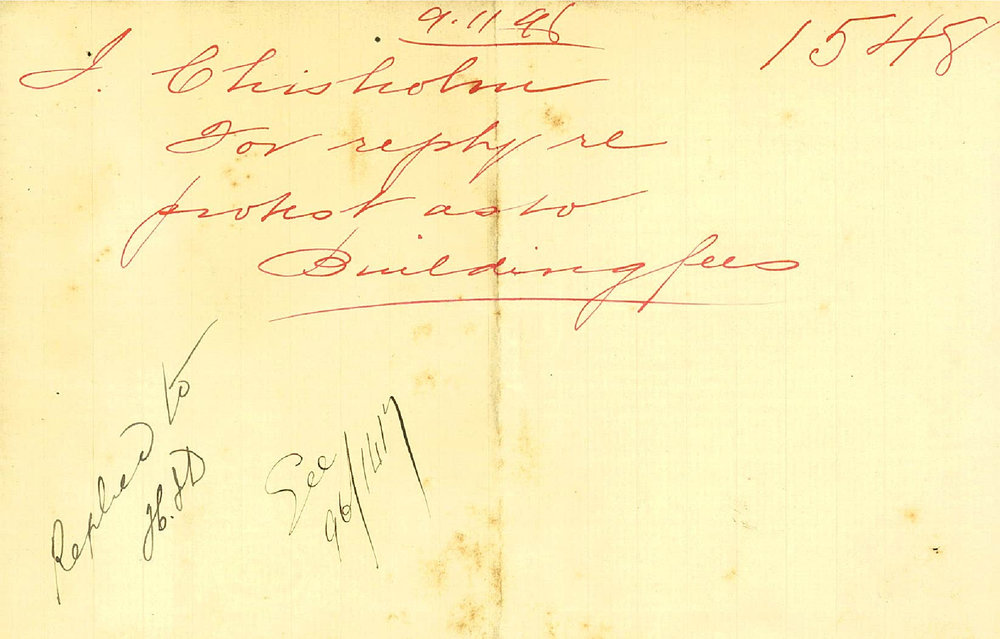 9.11.96
1548
J. Chisholm
For reply re
protest as to
Building fees
Replied to
See
96/1417